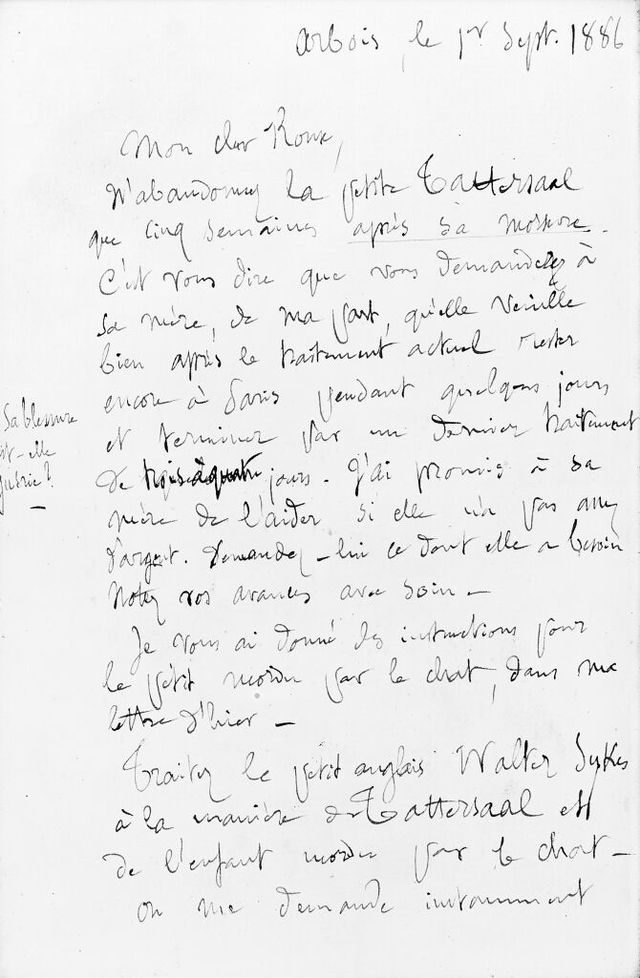 Arbois, le 1er Sept. 1886
Mon cher Roux,
N'abandonnez la petite Tattersaal
que cinq semaines après sa morsure.
C'est vous dire que vous demanderez à
sa mère, de ma part, qu'elle veuille
bien après le traitement actuel rester
encore à Paris pendant quelques jours
et terminer par un dernier traitement
de trois à quatre jours. J'ai promis à sa
mère de l'aider si elle n'a pas assez
d'argent. Demandez-lui ce dont elle a besoin
Notez vos avances avec soin —
Sa blessure
est-elle
guérie ?
Je vous ai donné des instructions pour
le petit mordu par le chat, dans ma
lettre d'hier —
Traitez le petit anglais Walter Sykes
à la manière de Tattersaal et
de l'enfant mordu par le chat —
On me demande instamment